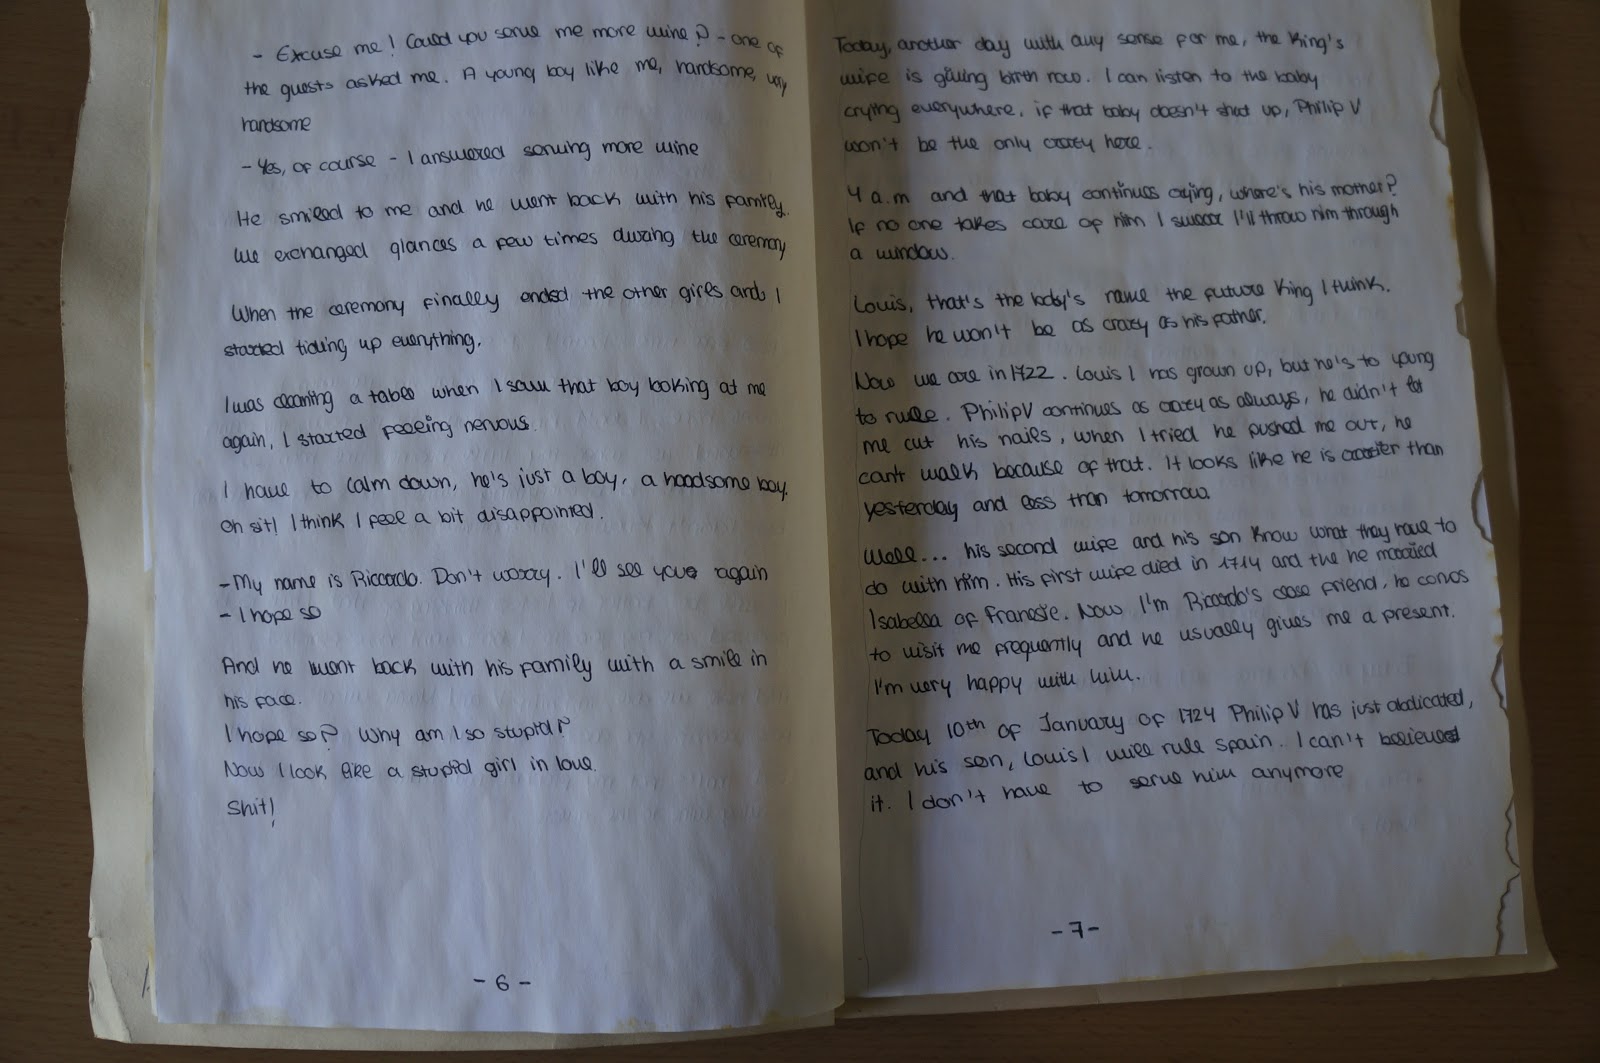 - Excuse me! Could you serve me more wine? - one of
the guests asked me. A young boy like me, handsome, very
handsome
- Yes, of course - I answered serving more wine
He smiled to me and he went back with his family.
We exchanged glances a few times during the ceremony
When the ceremony finally ended the other girls and I
started tiding up everything.
I was cleaning a table when I saw that boy looking at me
again, I started feeling nervous.
I have to calm down, he's just a boy, a handsome boy.
Oh sit! I think I feel a bit disappointed.
- My name is Riccardo. Don't worry. I'll see you again
- I hope so
And he went back with his family with a smile in
his face.
I hope so? Why am I so stupid?
Now I look like a stupid girl in love.
Shit!
- 6 -
Today, another day with any sense for me, the King's
wife is giving birth now. I can listen to the baby
crying everywhere, if that baby doesn't shut up, Philip V
won't be the only crazy here.
4 a.m and that baby continues crying, where's his mother?
If no one takes care of him I swear I'll throw him through
a window.
Louis, that's the baby's name the future King I think.
I hope he won't be as crazy as his father.
Now we are in 1722. Louis I has grown up, but he's to young
to rule. Philip V continues as crazy as always, he didn't let
me cut his nails, when I tried he pushed me out, he
can't walk because of that. It looks like he is crazier than
yesterday and less than tomorrow.
Well... his second wife and his son know what they have to
do with him. His first wife died in 1714 and the he married
Isabella of Franesie. Now I'm Riccardo's close friend, he comes
to visit me frequently and he usually gives me a present.
I'm very happy with him.
Today 10th of January of 1724 Philip V has just abdicated,
and his son, Louis I will rule Spain. I can't believed
it. I don't have to serve him anymore
- 7 -